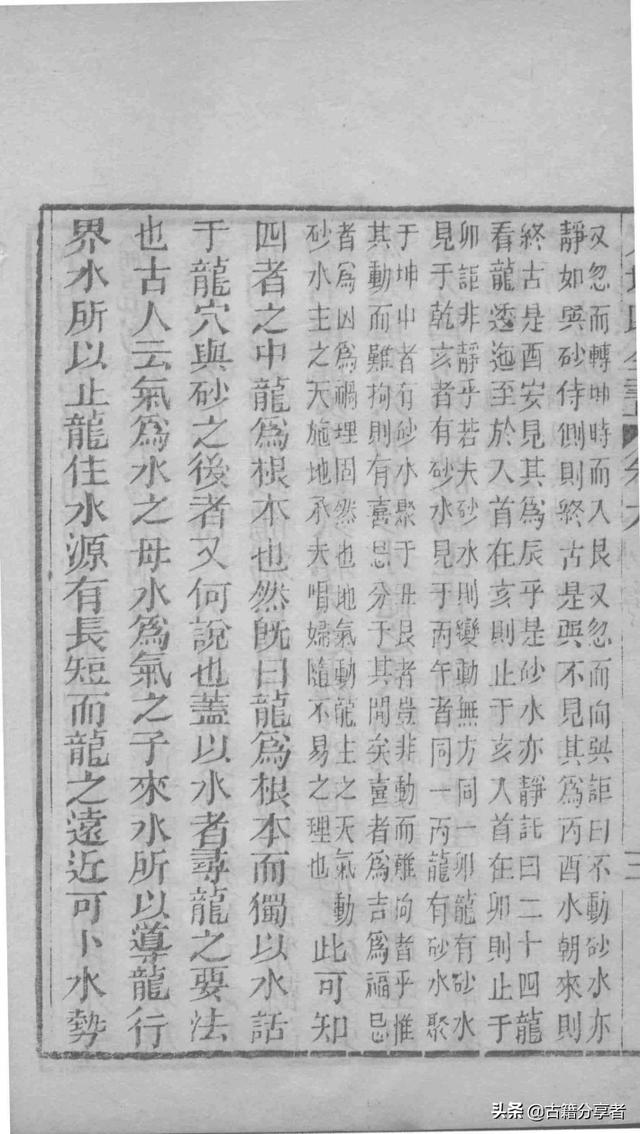 又忽而轉坤時而入艮又忽而向巽詎曰不動砂水亦
靜如巽砂侍側則終古是巽不見其爲丙酉水朝來則
終古是酉安見其爲辰乎是砂水亦靜詎曰二十四龍
看龍透迤至於入首在亥則止于亥入首在卯則止于
卯詎非靜乎若夫砂水則變動無方同一卯龍有砂水
見于乾亥者有砂水見于丙午者同一丙龍有砂水聚
于坤申者有砂水聚于丑艮者豈非動而難拘者乎惟
其動而難拘則有喜忌分于其間矣喜者爲吉爲福忌
者爲凶爲禍理固然也地氣動龍主之天氣動
砂水主之天施地承夫唱婦隨不易之理也
此可知
四者之中龍爲根本也然既曰龍爲根本而獨以水話
于龍穴與砂之後者又何說也蓋以水者尋龍之要法
也古人云氣爲水之母水爲氣之子來水所以導龍行
界水所以止龍住水源有長短而龍之遠近可卜水勢
头条 @古籍分享者